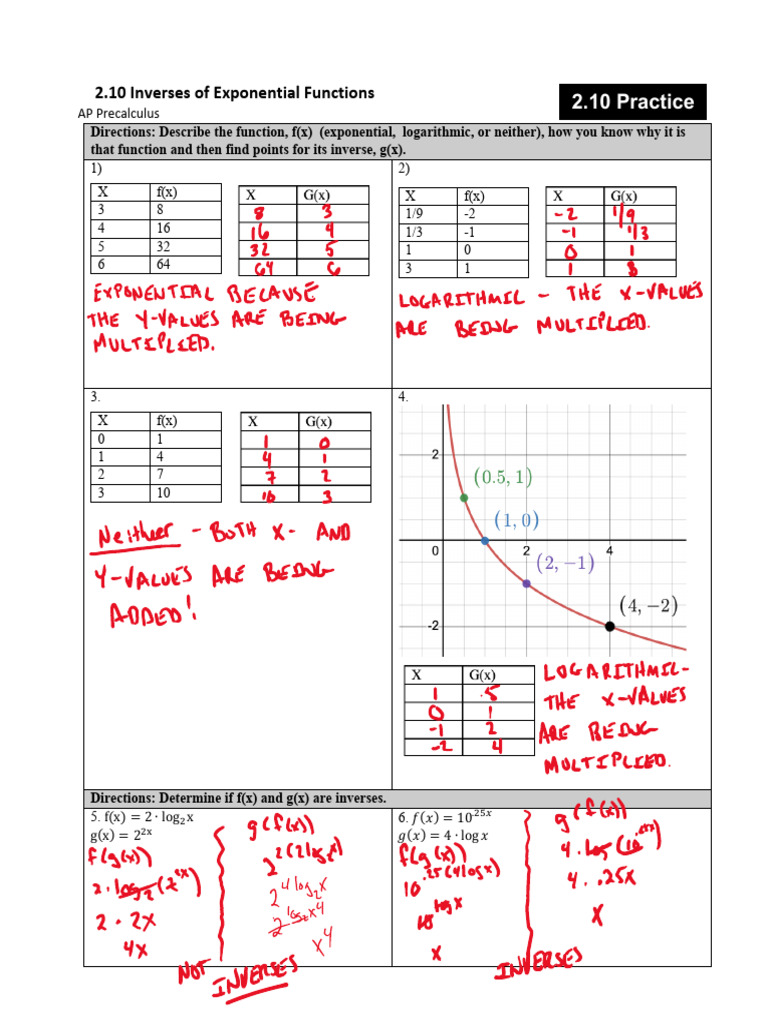 2.10 Inverses of Exponential Functions
2.10 Practice
AP Precalculus
Directions: Describe the function, f(x) (exponential, logarithmic, or neither), how you know why it is
that function and then find points for its inverse, g(x).
1)
X f(x)
3 8
4 16
5 32
6 64
X G(x)
8 3
16 4
32 5
64 6
EXPONENTIAL BECAUSE
THE Y-VALUES ARE BEING
MULTIPLIED.
2)
X f(x)
1/9 -2
1/3 -1
1 0
3 1
X G(x)
-2 1/9
-1 1/3
0 1
1 3
LOGARITHMIC - THE X-VALUES
ARE BEING MULTIPLIED.
3.
X f(x)
0 1
1 4
2 7
3 10
X G(x)
1 0
4 1
7 2
10 3
Neither - BOTH X- AND
Y-VALUES ARE BEING
ADDED!
4.
2
(0.5, 1)
(1, 0)
0 2 4
(2, −1)
(4, −2)
-2
X G(x)
1 .5
0 1
-1 2
-2 4
LOGARITHMIC-
THE X-VALUES
ARE BEING
MULTIPLIED.
Directions: Determine if f(x) and g(x) are inverses.
5. f(x) = 2 · log₂x
g(x) = 2²ˣ
f(g(x))
2·log₂(2²ˣ)
2 · 2x
4x
g(f(x))
2^2(2log₂x)
2^4log₂x
2^log₂x⁴
x⁴
NOT INVERSES
6. f(x) = 10^.25x
g(x) = 4 · log x
f(g(x))
10^.25(4logx)
10^logx
x
g(f(x))
4·log(10^.25x)
4 · .25x
x
INVERSES